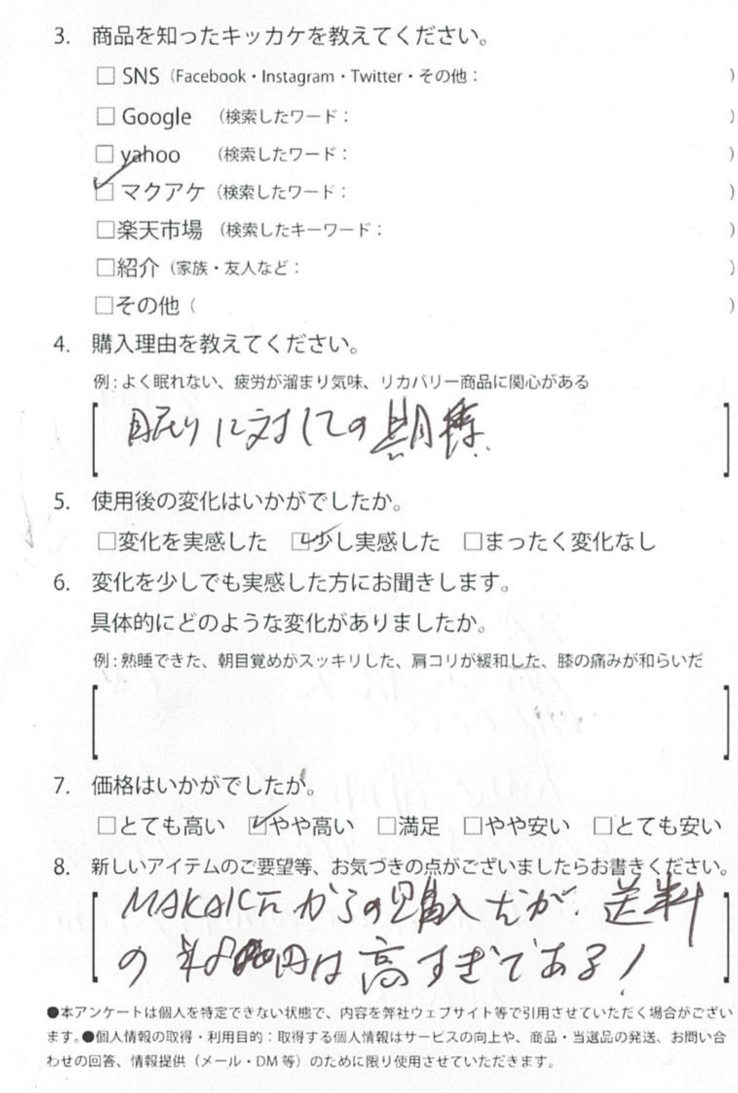 3. 商品を知ったキッカケを教えてください。
□ SNS（Facebook・Instagram・Twitter・その他： ）
□ Google （検索したワード： ）
□ yahoo （検索したワード： ）
☑ マクアケ（検索したワード： ）
□楽天市場 （検索したキーワード： ）
□紹介（家族・友人など： ）
□その他（ ）
4. 購入理由を教えてください。
例：よく眠れない、疲労が溜まり気味、リカバリー商品に関心がある
眠りに対しての期待
5. 使用後の変化はいかがでしたか。
□変化を実感した ☑少し実感した □まったく変化なし
6. 変化を少しでも実感した方にお聞きします。
具体的にどのような変化がありましたか。
例：熟睡できた、朝目覚めがスッキリした、肩コリが緩和した、膝の痛みが和らいだ
7. 価格はいかがでしたか。
□とても高い ☑やや高い □満足 □やや安い □とても安い
8. 新しいアイテムのご要望等、お気づきの点がございましたらお書きください。
からの購入だが、送料
の 円は高すぎである！
●本アンケートは個人を特定できない状態で、内容を弊社ウェブサイト等で引用させていただく場合がござい
ます。●個人情報の取得・利用目的：取得する個人情報はサービスの向上や、商品・当選品の発送、お問い合
わせの回答、情報提供（メール・DM 等）のために限り使用させていただきます。